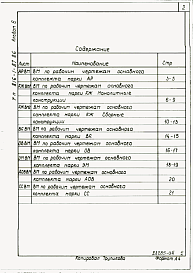 2
Содержание
Лист Наименование Стр
АР.ВМ ВМ по рабочим чертежам основного
комплекта марки АР 3-5
КЖ.ВМ ВМ по рабочим чертежам основного
комплекта марки КЖ Монолитные
конструкции 6-9
ВМ по рабочим чертежам основного
комплекта марки КЖ Сборные
конструкции 10-13
ВК.ВМ ВМ по рабочим чертежам основного
комплекта марки ВК 14-15
ОВ.ВМ ВМ по рабочим чертежам основного
комплекта марки ОВ 16-17
ЭМ.ВМ ВМ по рабочим чертежам основного
комплекта марки ЭМ 18-19
АОВ.ВМ ВМ по рабочим чертежам основного
комплекта марки АОВ 20
СС.ВМ ВМ по рабочим чертежам основного
комплекта марки СС 21
Копировал
Формат А4